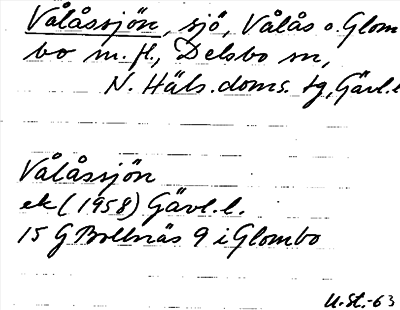 Vålåssjön, sjö, Vålås o. Glom
bo m.fl., Delsbo sn,
N. Häls. doms. tg, Gävl. l
Vålåssjön
ek (1958) Gävl. l.
15 G Bollnäs 9 i Glombo
U. St. -63